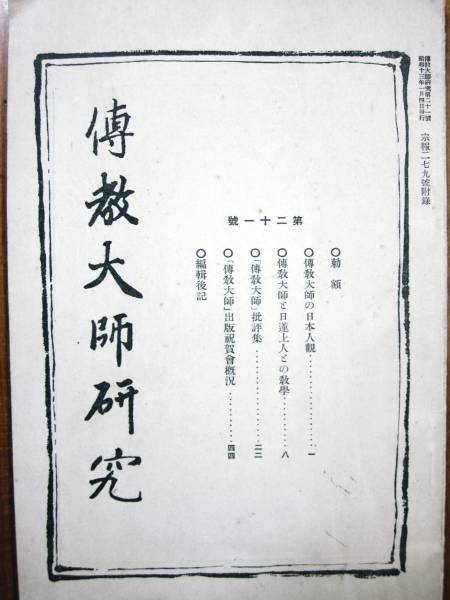 傳教大師研究第二十一號
昭和十三年一月四日發行
宗報二七九號附錄
第二十一號
○勅額
○傳敎大師の日本人觀……………一
○傳敎大師と日蓮上人との敎學…………八
○「傳敎大師」批評集……………二二
○「傳敎大師」出版祝賀會槪況…………四四
○編輯後記
傳教大師研究